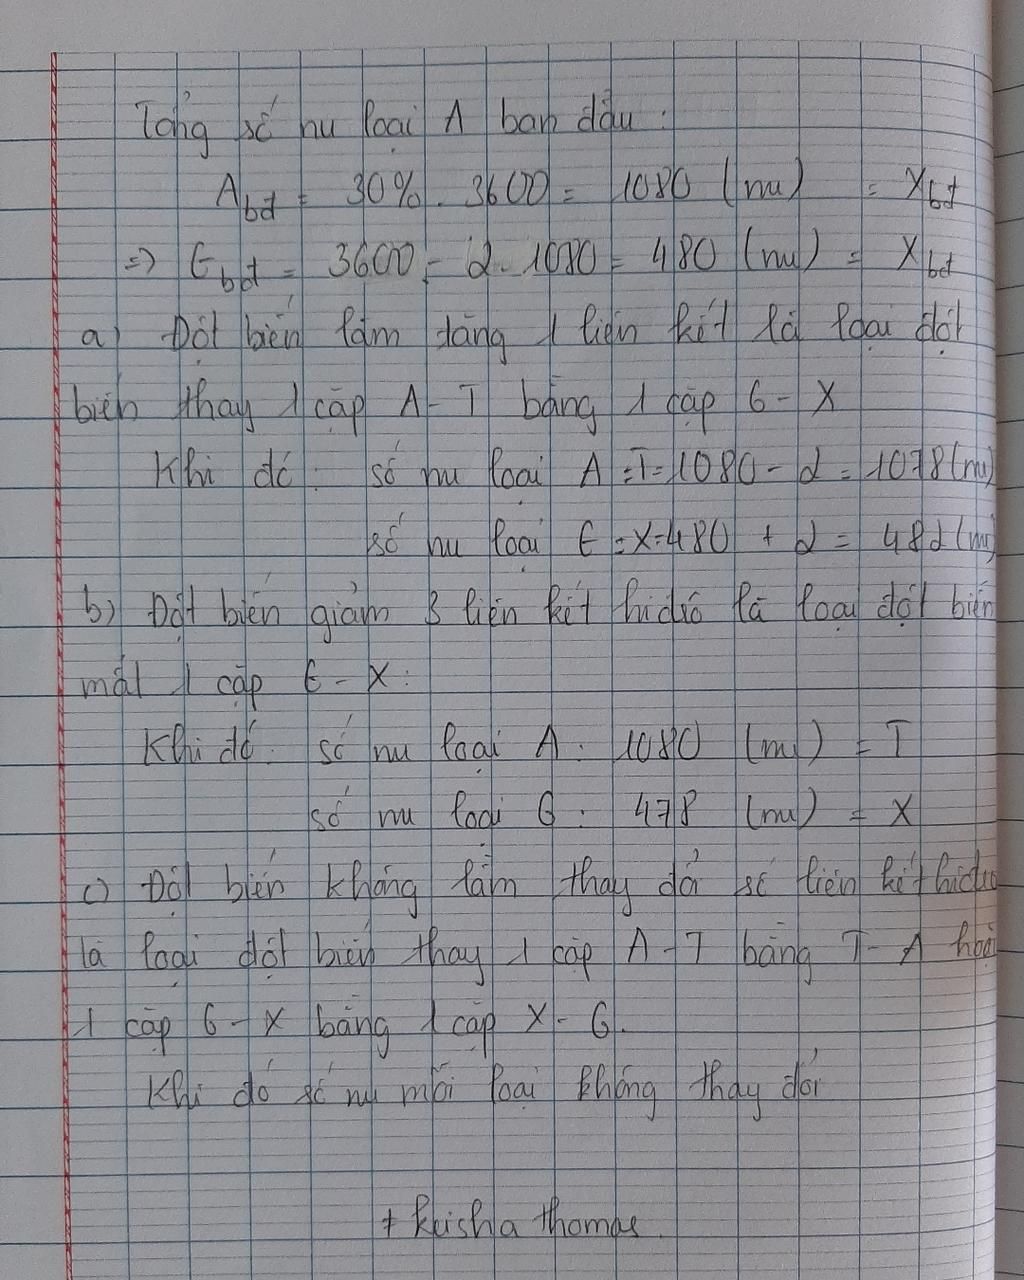 Tổng số nu loại A ban đầu :
Abđ = 30% . 3600 = 1080 (nu) = Xbđ
=> Gbđ = 3600 - 2 . 1080 = 480 (nu) = Xbđ
a) Đột biến làm tăng 1 liên kết là loại đột
biến thay 1 cặp A - T bằng 1 cặp G - X
Khi đó : số nu loại A = T = 1080 - 2 = 1078 (nu)
số nu loại G = X = 480 + 2 = 482 (nu)
b) Đột biến giảm 3 liên kết hidrô là loại đột biến
mất 1 cặp G - X :
Khi đó : số nu loại A : 1080 (nu) = T
số nu loại G : 478 (nu) = X
c) Đột biến không làm thay đổi số liên kết hidro
là loại đột biến thay 1 cặp A - T bằng T - A hoặc
1 cặp G - X bằng 1 cặp X - G.
Khi đó số nu mỗi loại không thay đổi
+ keisha thomas